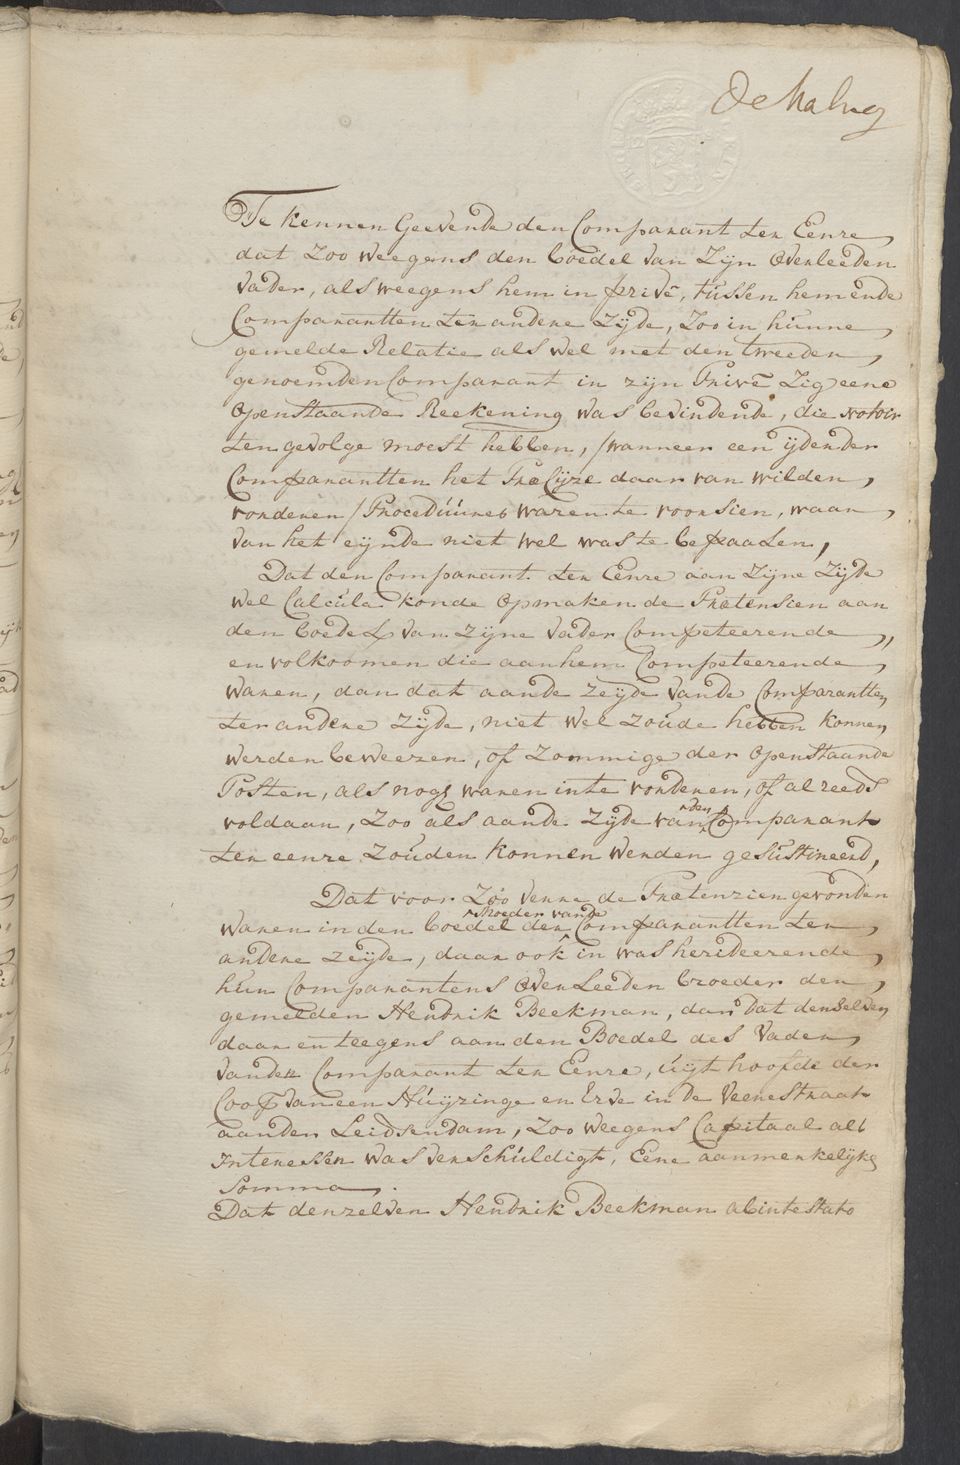 Te kennen Geevende den Comparant ter Eenre
dat Zoo weegens den boedel van Zijn Overleeden
Vader, als weegens hem in privé, tússen hem ende
Comparantten ter andere Zijde, Zoo in húnne
gemelde Relatie als wel met den tweeden
genoemden Comparant in zijn Privé Zig eene
Openstaande Reekening was bevindende, die notoir
ten gevolge moest hebben, /wanneer een ijder der
Comparantten het Præcijze daar van wilden
vorderen/ Procedúúres waren te voorsien, waar
van het eijnde niet wel was te bepaalen,
Dat den Comparant ter Eenre aan Zijne Zijde
wel Calcúla konde opmaken de Prætensien aan
den boedel van Zijne Vader Competeerende,
en volkoomen die aan hem Competeerende
waren, dan dat aande zeijde vande Comparantten
ter andere Zijde, niet wel zoúde hebben konnen
werden beweezen, of Zommige der openstaande
Posten, als nog waren inte vorderen, of al reeds
voldaan, Zoo als aande Zijde van den Comparant
ter eenre Zoúden konnen werden gesústineerd,
Dat voor Zóó verre de Prætenzien gevonden
waren in den boedel der Moeder vande Comparantten ter
andere zeijde, daar ook in was herideerende
hun Comparantens Overleeden broeder den
gemelden Hendrik Beekman, dan dat denzelden
daar en teegens aan den Boedel des Vader
vanden Comparant ter Eenre, úijt hoofde der
Coop van een Húijzinge en Erve in de Veenestraat
aanden Leidsendam, Zoo weegens Capitaal als
Interessen was verschúldigt, Eene aanmerkelijke
Somma,
Dat denzelven Hendrik Beekman abintestato